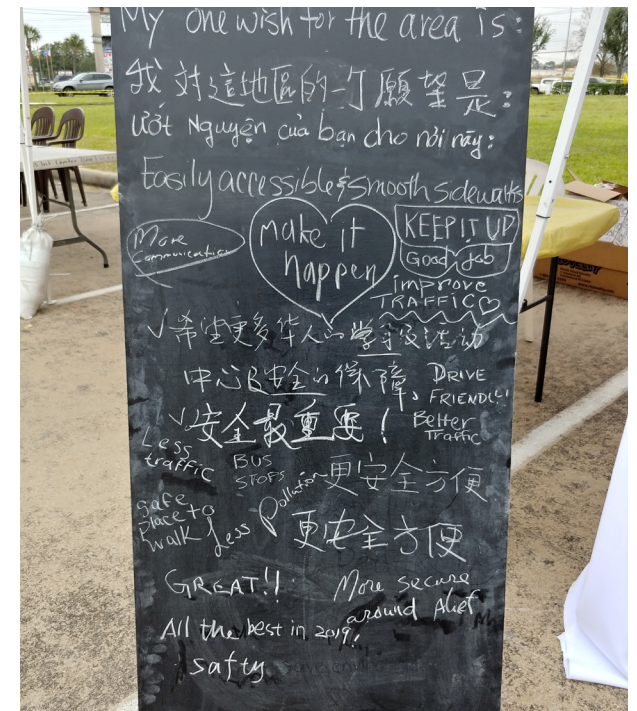 My one wish for the area is:
我對這地區的一个願望是:
ước Nguyện của bạn cho nơi này:
Easily accessible & smooth sidewalks
More
communication
make it
happen
KEEP IT UP
Good Job
improve
TRAFFIC
✓希望更多华人的学习及活动
中心B安全的保障、
DRIVE
FRIENDLY
Better
Traffic
✓安全最重要!
Less
traffic
BUS
STOPS
更安全方便
safe
place to
walk
Less Pollution
更安全方便
GREAT!!
More secure
around Alief
All the best in 2019!
safty